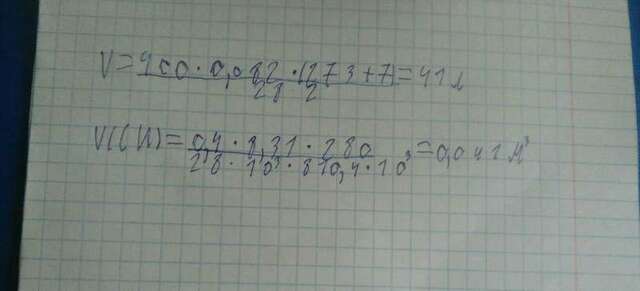 V=400·0,082·(273+7)/28·2=41л
V(СИ)=0,4·8,31·280/28·10³·810,4·10³=0,041м³